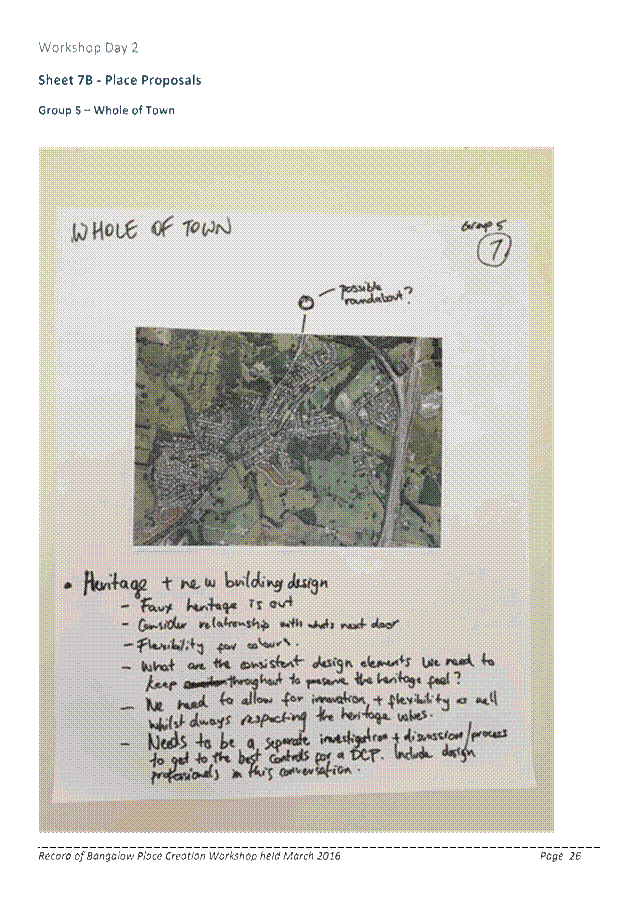 Workshop Day 2
Sheet 7B - Place Proposals
Group 5 – Whole of Town
WHOLE OF TOWN
Group 5
7
possible
roundabout?
• Heritage + new building design
- Faux heritage is out
- Consider relationship with whats next door
- Flexibility for colours.
- What are the consistent design elements we need to
keep throughout to preserve the heritage feel?
- We need to allow for innovation + flexibility as well
whilst always respecting the heritage values.
- Needs to be a separate investigation + discussion/process
to get to the best controls for a DCP. Include design
professionals in this conversation.
Record of Bangalow Place Creation Workshop held March 2016
Page 26